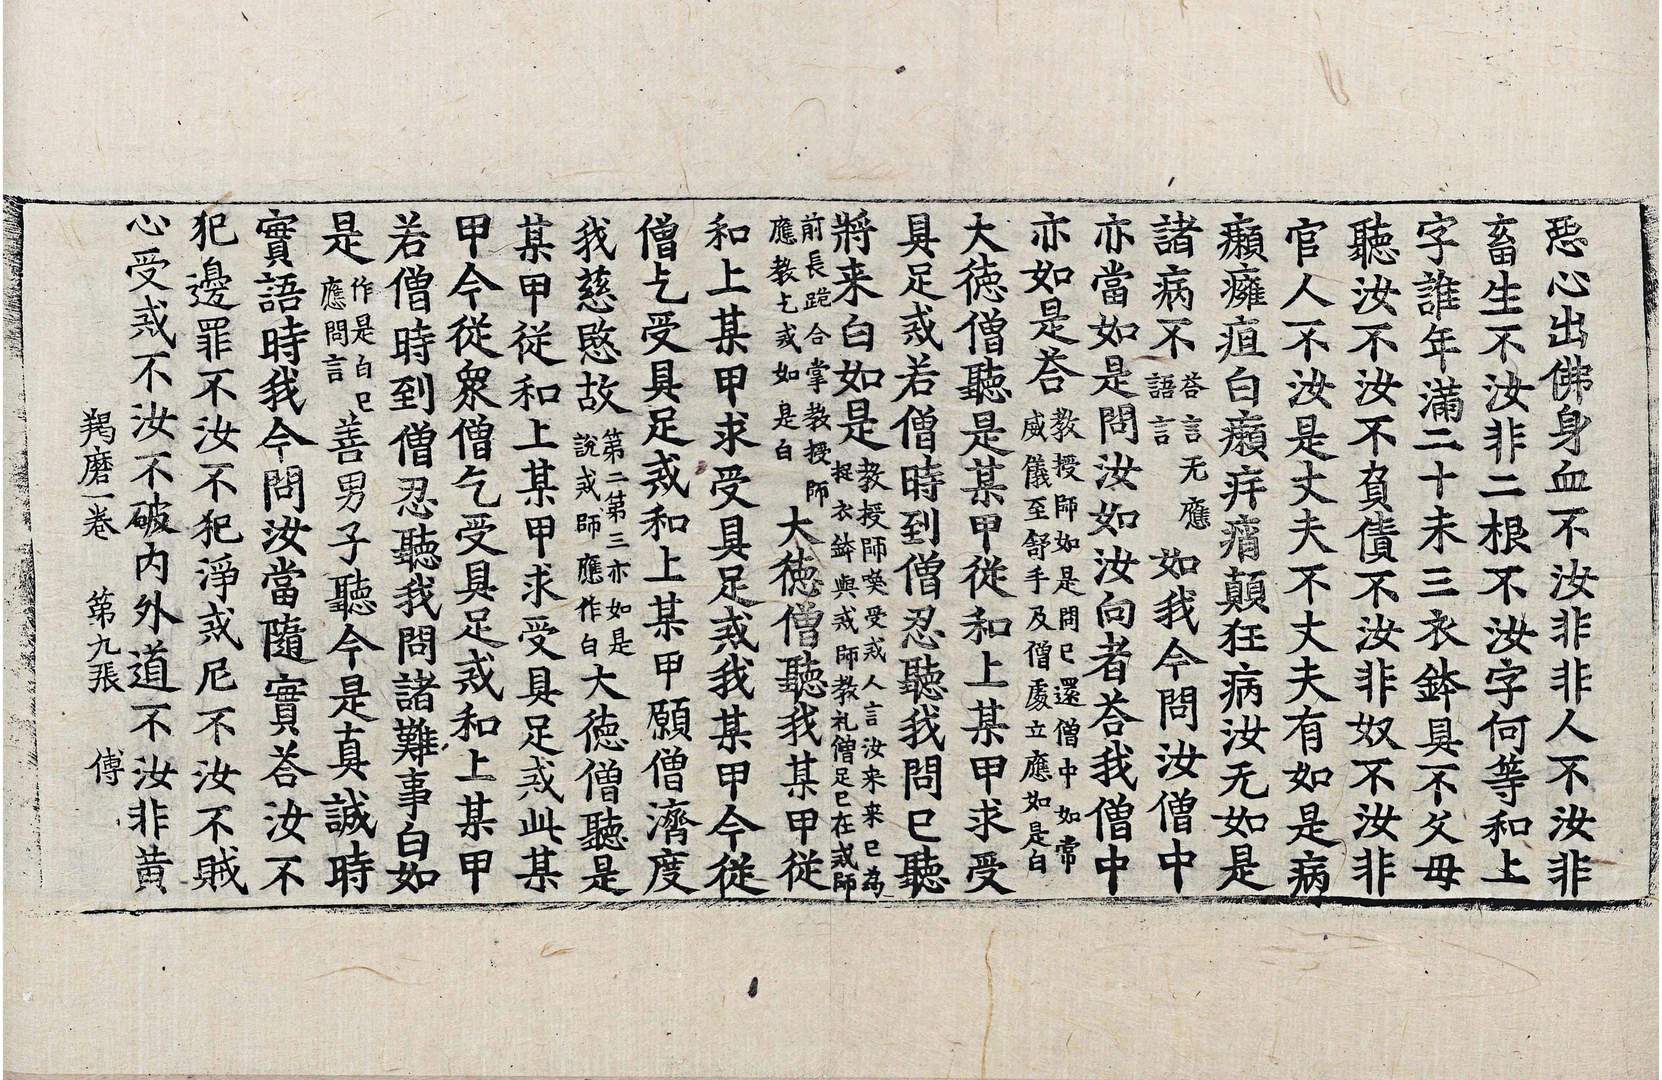 惡心出佛身血不汝非非人不汝非
畜生不汝非二根不汝字何等和上
字誰年滿二十未三衣鉢具不父母
聽汝不汝不負債不汝非奴不汝非
官人不汝是丈夫不丈夫有如是病
癩癰疽白癩痒痟顛狂病汝无如是
諸病不荅言无應語言如我今問汝僧中
亦當如是問汝如汝向者荅我僧中
亦如是荅教授師如是問已還僧中如常威儀至舒手及僧處立應如是白
大徳僧聽是某甲從和上某甲求受
具足戒若僧時到僧忍聽我問已聽
將来白如是教授師喚受戒人言汝来来已為捉衣鉢與戒師教礼僧足已在戒師
前長跪合掌教授師應教乞戒如是白大徳僧聽我某甲從
和上某甲求受具足戒我某甲今從
僧乞受具足戒和上某甲願僧濟度
我慈愍故第二第三亦如是說戒師應作白大徳僧聽是
某甲從和上某甲求受具足戒此某
甲今從衆僧乞受具足戒和上某甲
若僧時到僧忍聽我問諸難事白如
是作是白已應問言善男子聽今是真誠時
實語時我今問汝當隨實荅汝不
犯邊罪不汝不犯淨戒尼不汝不賊
心受戒不汝不破内外道不汝非黄
羯磨一卷 第九張 傳